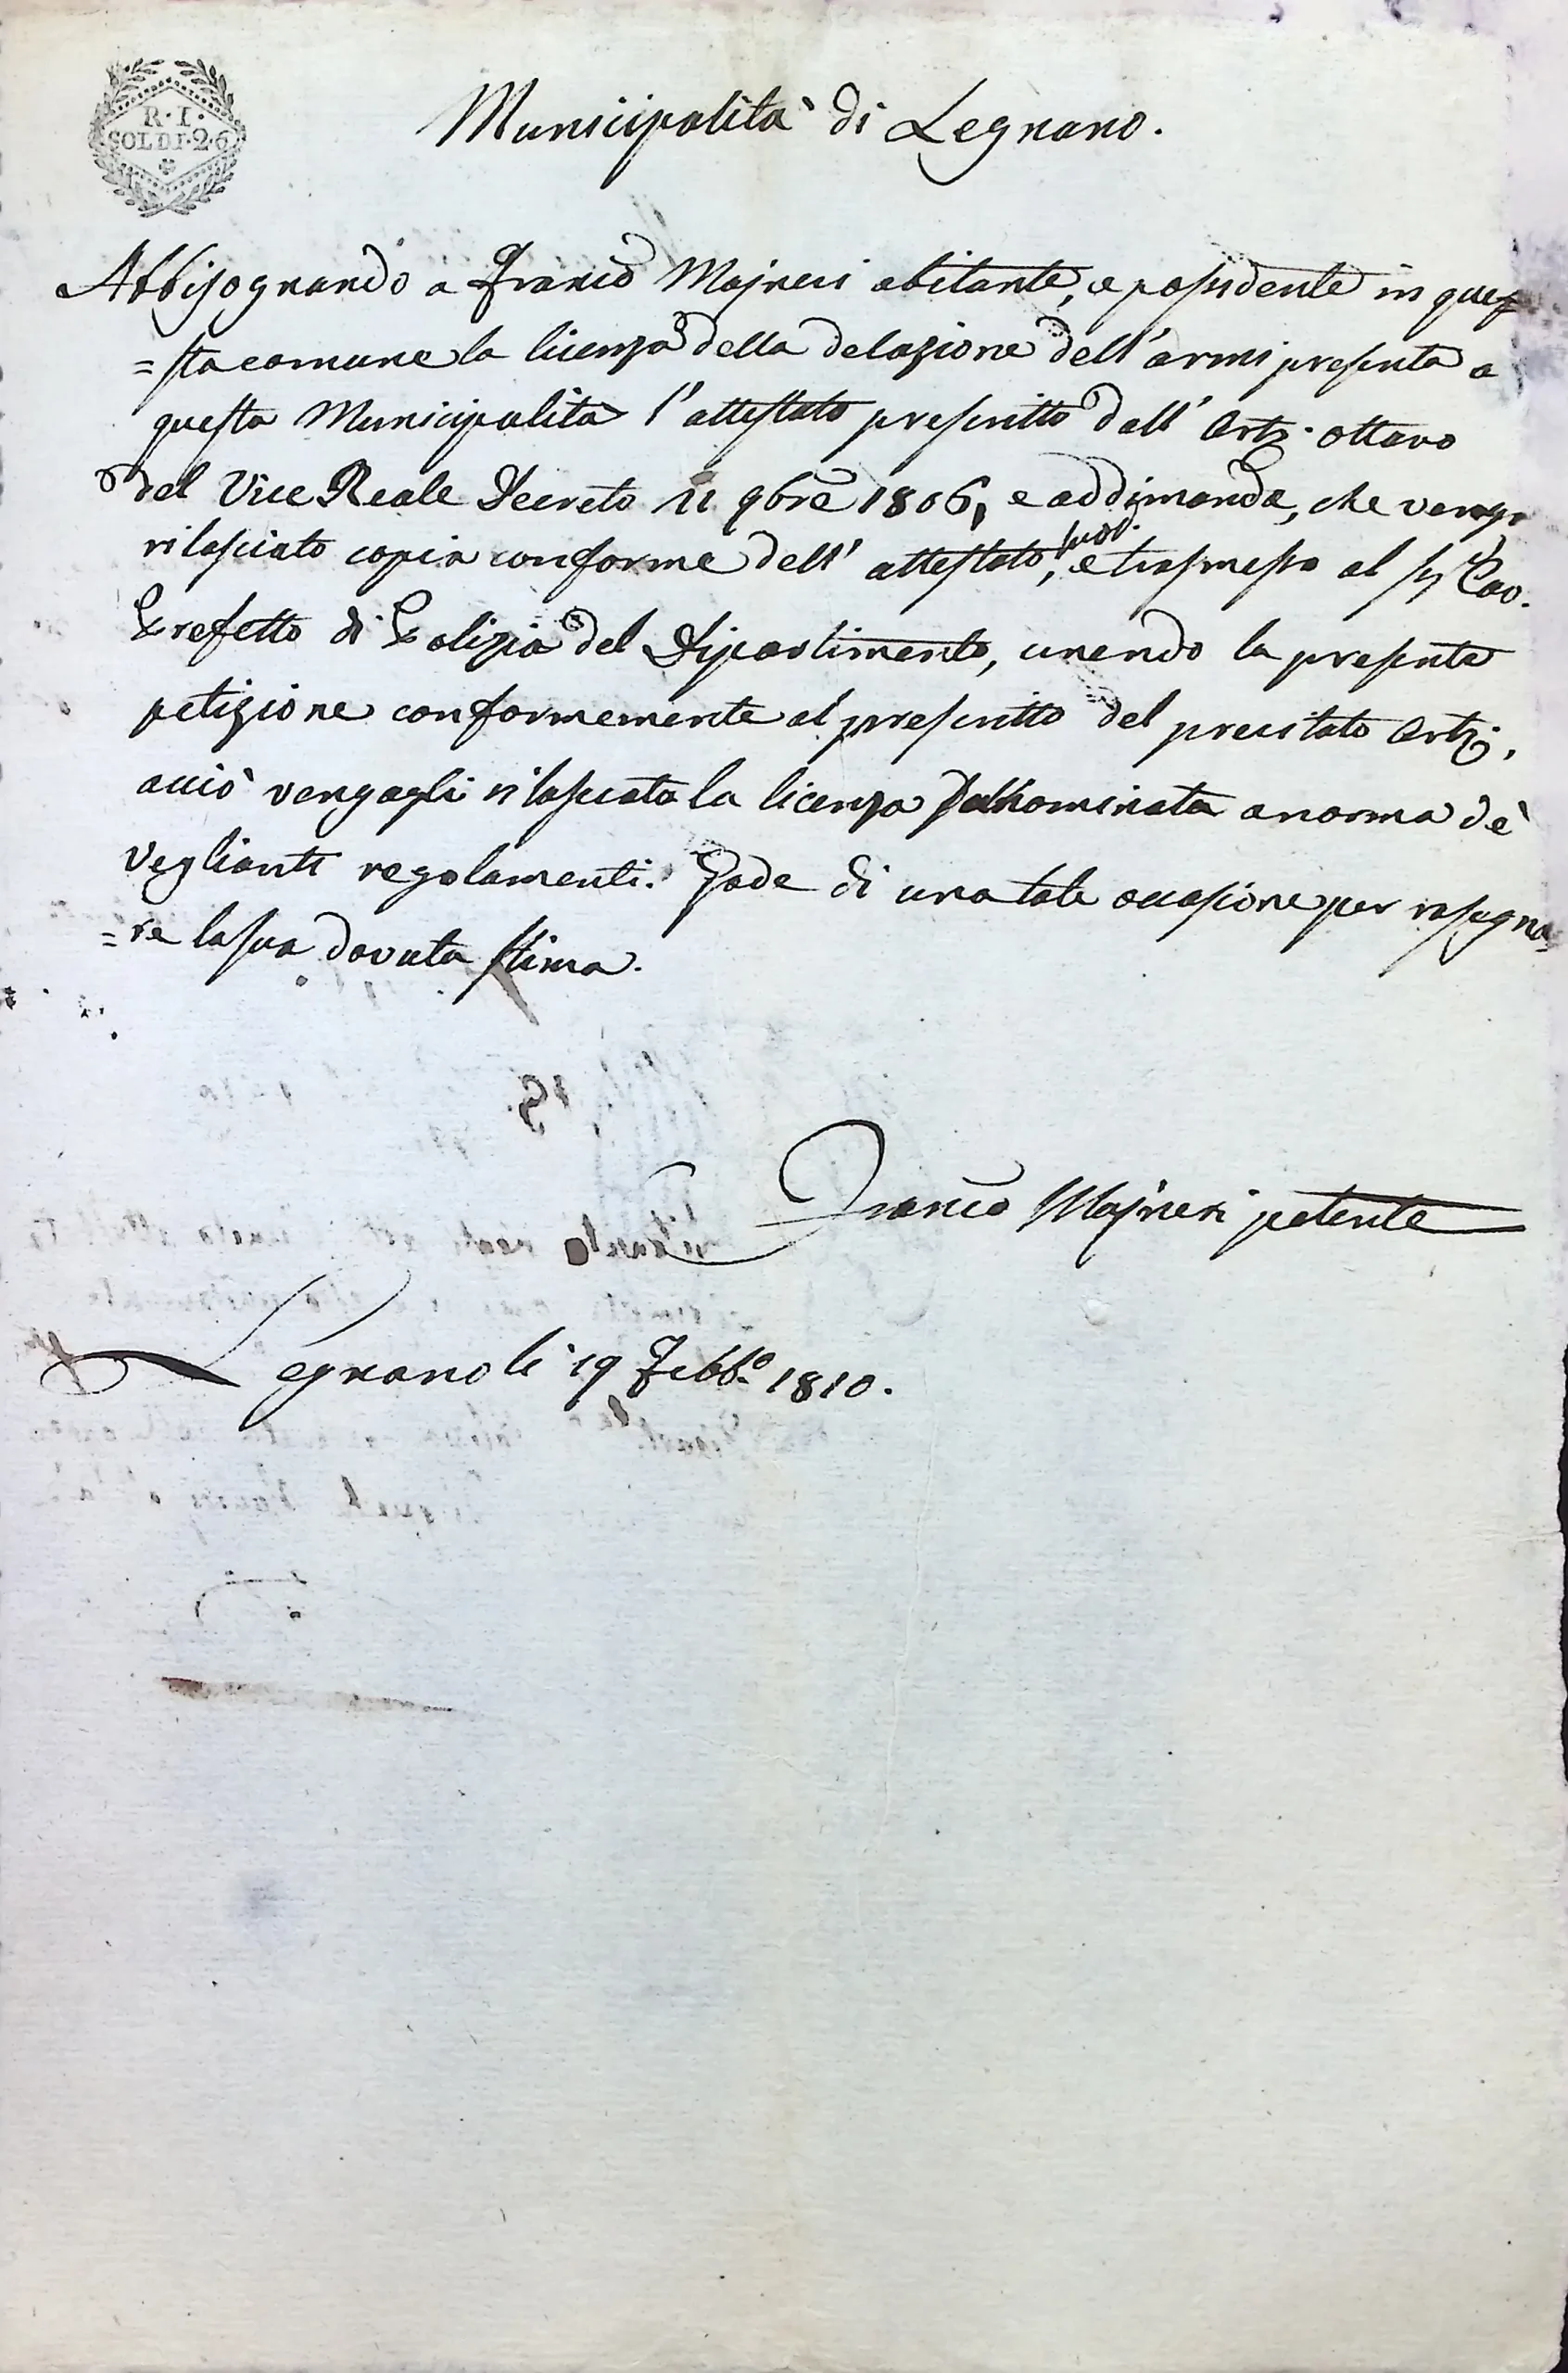 R·I·
SOLDI·2·6
Municipalità di Legnano.
Abbisognando a Franco Majneri abitante, e possidente in que
=sta comune la licenza della delazione dell'armi presenta a
questa Municipalità l'attestato prescritto dall' Art. ottavo
del Vice Reale Decreto 11 9bre 1806, e addimanda, che venga
rilasciato copia conforme dell' attestato, e trasmessa al Sig. Cav.
Prefetto di Polizia del Dipartimento, unendo la presente
petizione conformemente al prescritto del precitato Art.,
acciò vengagli rilasciata la licenza sunnominata a norma de'
veglianti regolamenti. Gode di una tale occasione per rasegna
=re la sua dovuta stima.
Franco Majneri petente
Legnano li 19 Febb.o 1810.